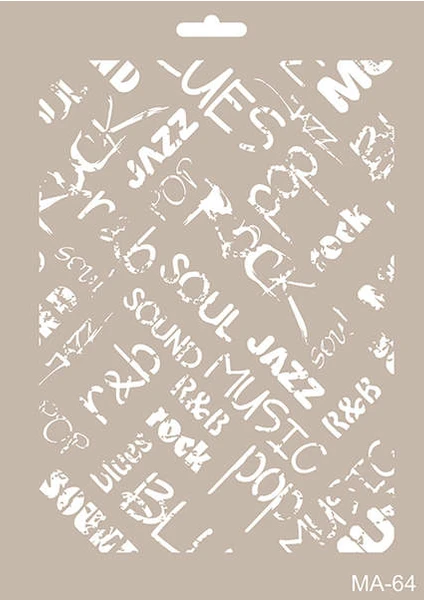 UES
JAZZ
rock
JAZZ
pop
pop
rock
rock
r&b
soul
SOUL
SOUND
JAZZ
soul
JAZZ
r&b
R&B
MUSIC
R&B
rock
pop
blues
pop
MUSIC
SOUND
BLU
MA-64